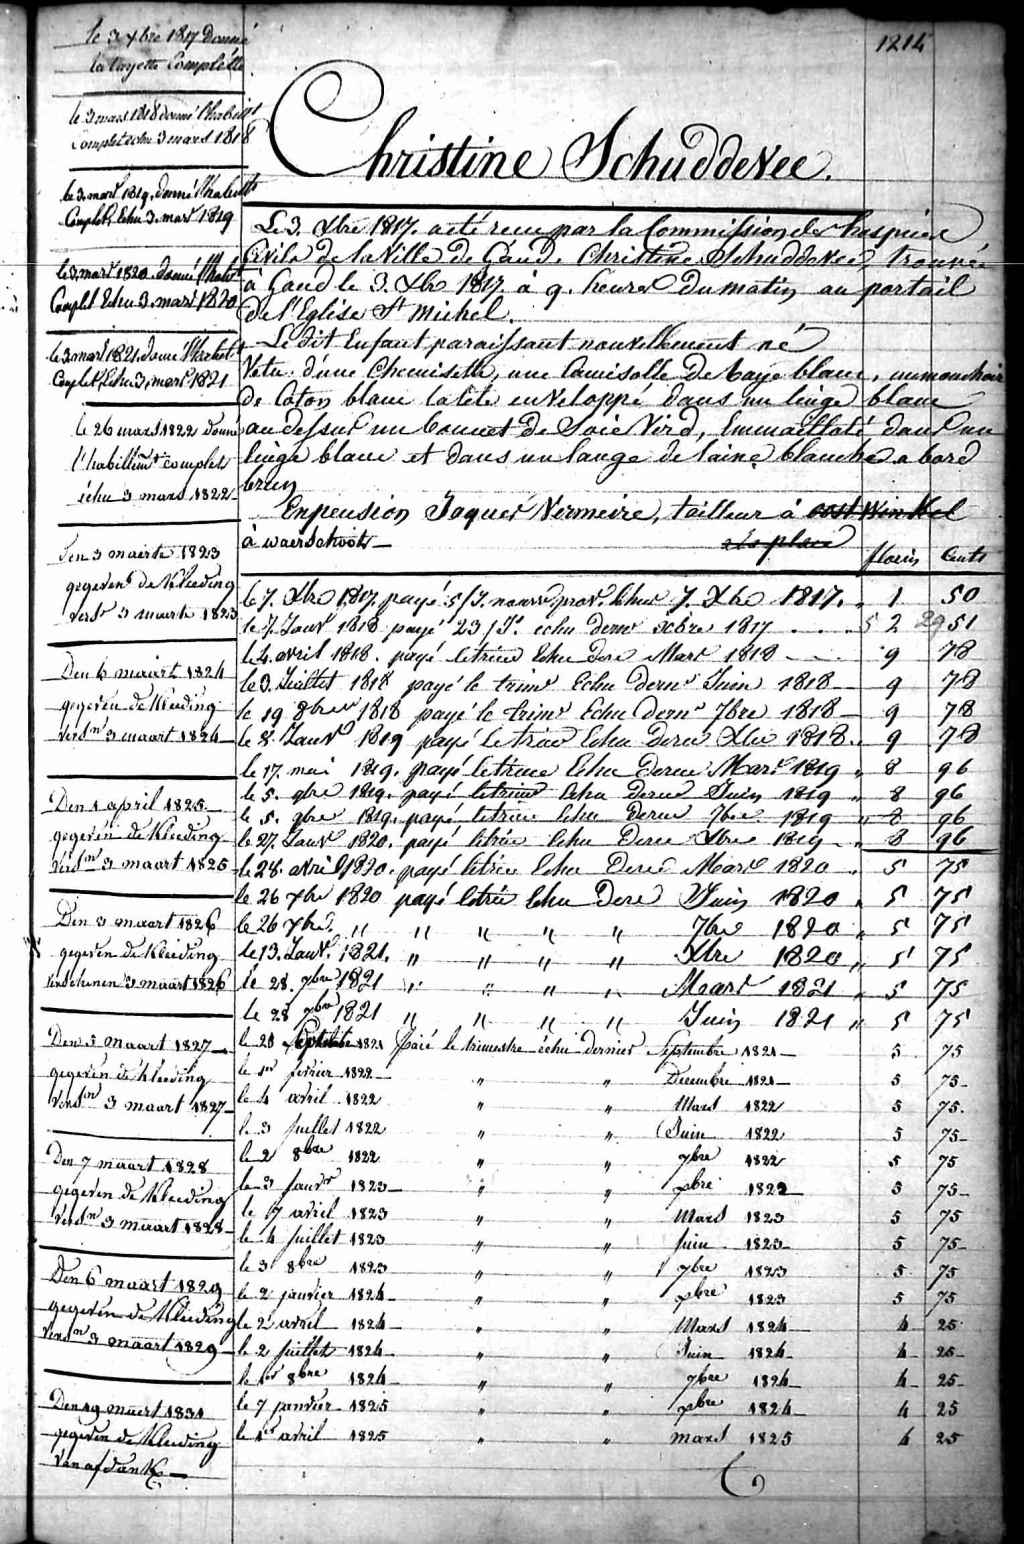 1214
le 3 xbre 1817 Donné
la layette Complétte
le 3 mars 1818 donné l'habillt
Complet echu 3 mars 1818
le 3. mars 1819. donné l'habillt
Complet, Echu 3. mars 1819
le 3. mars 1820. donné l'habillt
Complet Echu 3. mars 1820
le 3 mars 1821. donné l'habillt
Complet, Echu 3. mars 1821
le 26 mars 1822 donné
l'habillemt complet
échu 3 mars 1822
Den 3 maerte 1823
gegeven de Kleeding
versn 3 maerte 1823
Den 6 maart 1824
gegeven de Kleeding
versn 3 maart 1824
Den 1 april 1825
gegeven de Kleeding
versn 3 maart 1825
Den 3 maart 1826
gegeven de Kleeding
verschenen 3 maart 1826
Den 5 maart 1827
gegeven de Kleeding
versn 3 maart 1827
Den 7 maart 1828
gegeven de Kleeding
versn 3 maart 1828
Den 6 maart 1829
gegeven de Kleeding
versn 3 maart 1829
Den 19 maert 1831
gegeven de Kleeding
van afdank
Christine Schuddevee.
Le 3. Xbre 1817. a été recue par la Commission des hospices
Civils de la Ville de Gand, Christine Schuddevee, trouvée
à Gand le 3. Xbre 1817. à 9. heures du matin au portail
de l'Eglise St Michel.
Le dit Enfant paraissant nouvellement né
Vetu d'une Chemisette, une Camisolle de baye blanc, un mouchoir
de Coton blanc la tête enveloppé dans un linge blanc
au dessus un bonnet de Soie Verd, Emmailloté dans un
linge blanc et dans un lange de laine blanche a bord
brun
En pension Jaques Vermeire, tailleur à oost Winkel
à waerschoot
florin Cents
le 7. Xbre 1817. payé 5/J. nourre prov. Echu 7. Xbre 1817. " 1 50
le 7. Janvr 1818 payé 23/Js. echu dernr xbre 1817 .... 5 2 29 51
le 4. avril 1818. payé le trime Echu dere Mars 1818 9 78
le 3. Juillet 1818 payé le trimr Echu dernr Juin 1818 9 78
le 19 8bre 1818 payé le trimr Echu dernr 7bre 1818 9 78
le 8. Janvr 1819 payé le trime Echu derne Xbre 1818. 9 78
le 17. mai 1819. payé le trime Echu derne Mars 1819 " 8 96
le 5. 9bre 1819. payé le trime Echu derne Juin 1819 " 8 96
le 5. 9bre 1819. payé le trime Echu derne 7bre 1819 " 8 96
le 27. Janvr 1820. payé le trime Echu derne Xbre 1819 8 96
le 28. avril 1820. payé le trime Echu Derne Mars 1820 " 5 75
le 26 xbre 1820 payé le trie Echu Dere Juin 1820 " 5 75
le 26 xbre. " " " " " 7bre 1820 " 5 75
le 13. Janvr. 1821. " " " " Xbre 1820 " 5 75
le 28. 7bre 1821 " " " " Mars 1821 " 5 75
le 28 7bre 1821 " " " " Juin 1821 " 5 75
le 20 1821 Païé le trimestre échu dernier Septembre 1821 5 75
le 1er février 1822 " " Decembre 1821 5 75
le 4 avril 1822 " " Mars 1822 5 75.
le 3 juillet 1822 " " Juin 1822 5 75
le 2 8bre 1822 " " 7bre 1822 5 75
le 3 janvr 1823 " " xbre 1822 5 75
le 7 avril 1823 " " Mars 1823 5 75
le 4 juillet 1823 " " Juin 1823 5 75
le 3 8bre 1823 " " 7bre 1823 5 75
le 2 janvier 1824 " " xbre 1823 5 75
le 2 avril 1824 " " Mars 1824 4 25
le 2 juillet 1824 " " Juin 1824 4 25
le 1er 8bre 1824 " " 7bre 1824 4 25
le 7 janvier 1825 " " xbre 1824 4 25
le 1er avril 1825 " " mars 1825 4 25